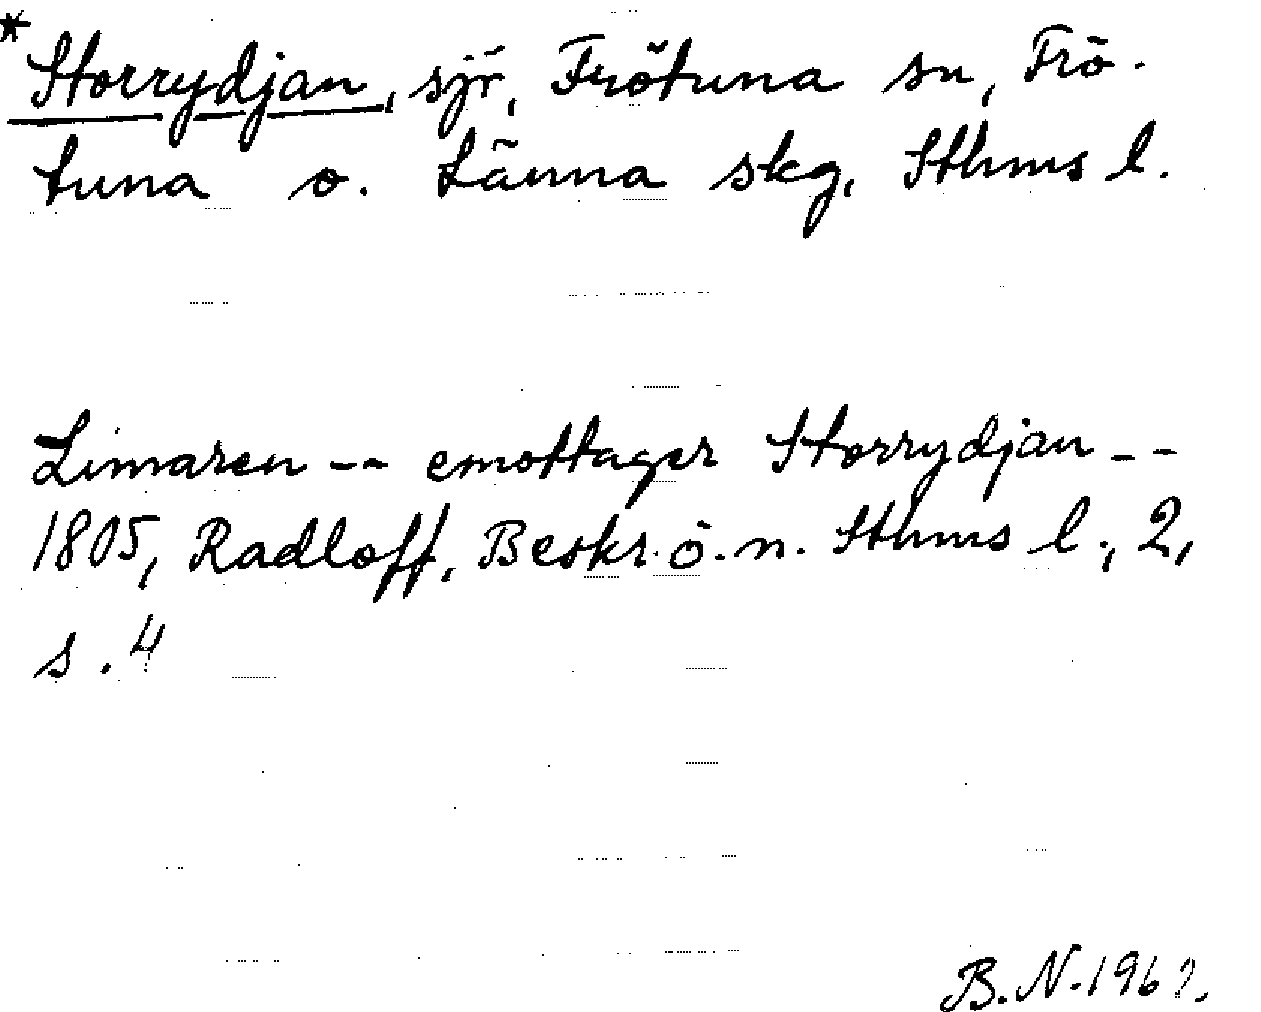 *Storrydjan, sjr, Frötuna sn, Frö-
tuna o. Länna skg, Sthms l.
Limaren -- emottager Storrydjan --
1805, Radloff, Beskr. ö. n. Sthms l., 2,
s. 4
B. N.